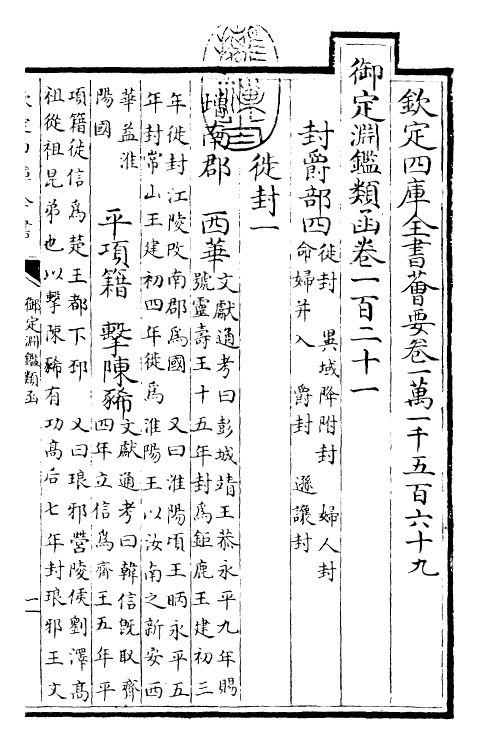 欽定四庫全書薈要卷一萬一千五百六十九
御定淵鑑類函卷一百二十一
封爵部四
徙封 異域降附封 婦人封
命婦并入 爵封 遜讓封
徙封一
南郡 西華
文獻通考曰彭城靖王恭永平九年賜
號靈壽王十五年封為鉅鹿王建初三
年徙封江陵改南郡為國 又曰淮陽頃王昞永平五
年封常山王建初四年徙為淮陽王以汝南之新安西
華益淮
陽國
平項籍 擊陳豨
文獻通考曰韓信既取齊
四年立信為齊王五年平
項籍徙信為楚王都下邳 又曰琅邪營陵侯劉澤高
祖從祖昆弟也以擊陳豨有功高后七年封琅邪王文
御定淵鑑類函
一